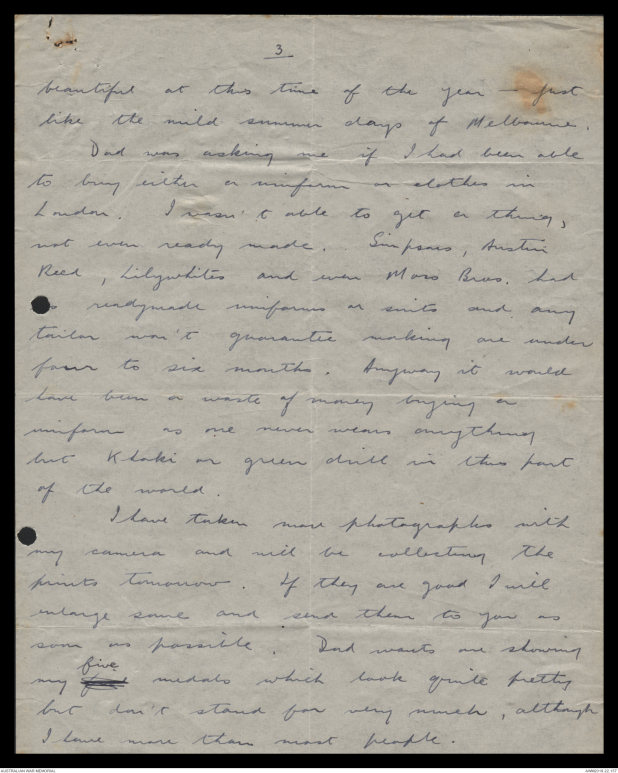 3
beautiful at this time of the year – just
like the mild summer days of Melbourne.
Dad was asking me if I had been able
to buy either a uniform or clothes in
London. I wasn't able to get a thing,
not even ready made. . Simpsons, Austin
Reed, Lilywhites and even Moss Bros. had
readymade uniforms or suits and any
tailor won't guarantee making one under
four to six months. Anyway it would
have been a waste of money buying a
uniform as one never wears anything
but Khaki or green drill in this part
of the world.
I have taken more photographs with
my camera and will be collecting the
prints tomorrow. If they are good I will
enlarge some and send them to you as
soon as possible. Dad wants one showing
five
my medals which look quite pretty
but don't stand for very much, although
I have more than most people.
AUSTRALIAN WAR MEMORIAL